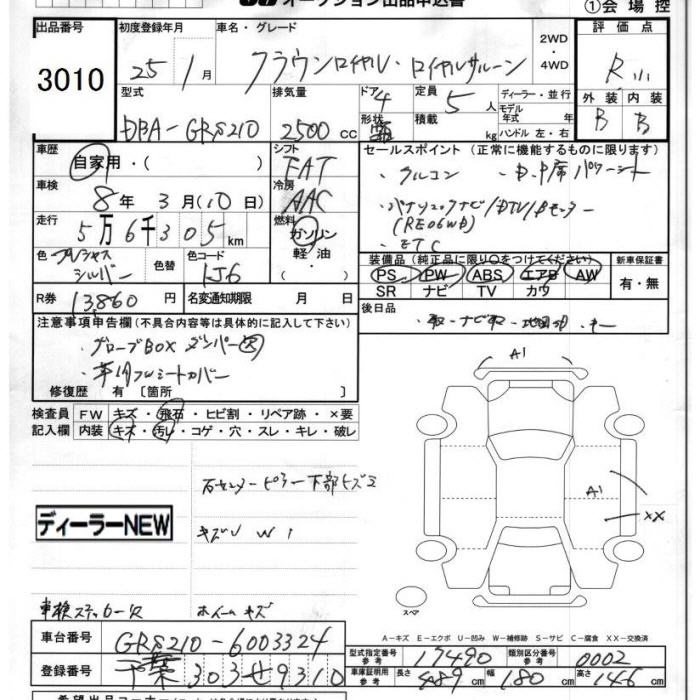 オークション出品申込書
①会場控
出品番号 初度登録年月 車名・グレード 2WD・4WD 評価点
3010 25 1月 クラウンロイヤル・ロイヤルサルーン R
型式 排気量 ドア 4 形状 定員 5人 積載 kg ディーラー・並行 モデル年式 年式 ハンドル 左・右 外装 内装
DBA-GRS210 2500cc B B
車歴 シフト セールスポイント (正常に機能するものに限ります)
自家用・( ) FAT ・クルコン ・D.P席パワーシート
車検 冷房 ・パナソニックナビ/DTV/Bモニター
8年3月(10日) AAC (RE06WB)
走行 燃料 ・ETC
5万6千305km ガソリン・軽油・( )
色 プレシャスシルバー 色替 色コード 1J6 装備品 (純正品に限り○をつけてください) 新車保証書
PS PW ABS エアB AW 有・無
SR ナビ TV カワ
R券 13860円 名変通知期限 月 日 後日品
注意事項申告欄 (不具合内容等は具体的に記入して下さい) ・取・ナビ取・地図
・グローブBOXダンパー
・革調フルシートカバー
修復歴 有 〔箇所 〕
検査員 FW キズ・飛石・ヒビ割・リペア跡・×要
記入欄 内装 キズ・汚レ・コゲ・穴・スレ・キレ・破レ
A1
右センターピラー下部キズ
A1
ディーラーNEW
XX
キズU W1
車検ステッカー欠 ホイールキズ
スペア
A-キズ E-エクボ U-凹み W-補修跡 S-サビ C-腐食 XX-交換済
車台番号 GRS210-6003324 型式指定番号 参考 17490 類別区分番号 参考 0002
登録番号 千葉303せ9310 車庫証明用 参考 長さ 489cm 幅 180cm 高さ 146cm